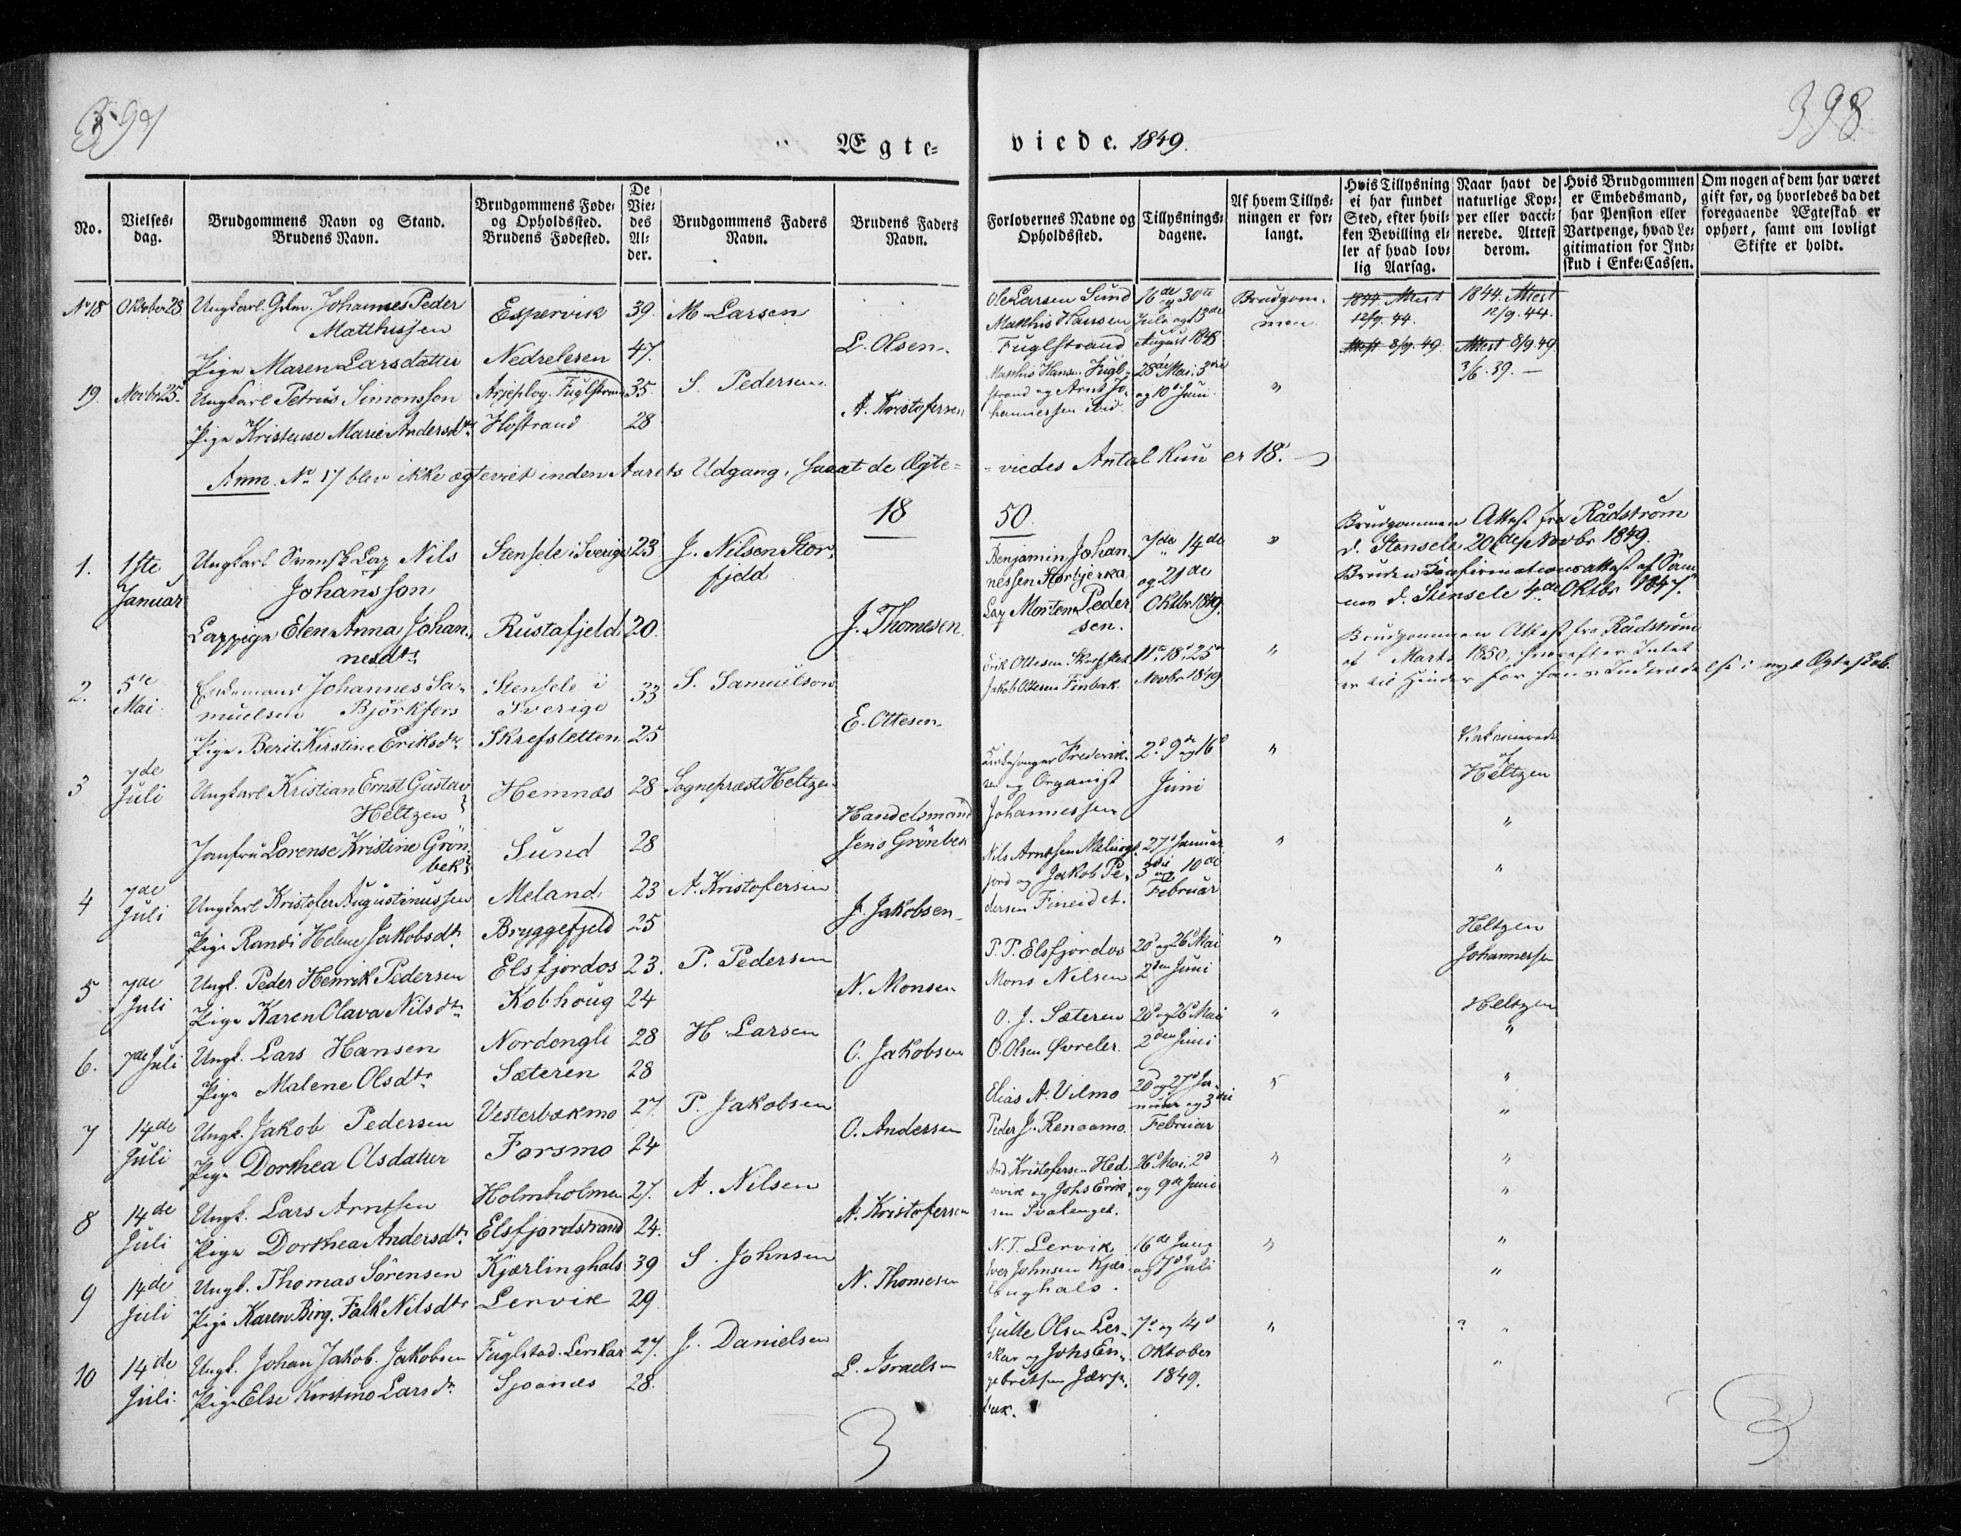 397
398
Ægte-
viede. 1849.
No.
Vielses-
dag.
Brudgommens Navn og Stand.
Brudens Navn.
Brudgommens Føde-
og Opholdssted.
Brudens Fødested.
De
Vie-
des
Al-
der.
Brudgommens Faders
Navn.
Brudens Faders
Navn.
Forlovernes Navne og
Opholdssted.
Tillysnings-
dagene.
Af hvem Tillys-
ningen er for-
langt.
Hvis Tillysning
ei har fundet
Sted, efter hvil-
ken Bevilling el-
ler af hvad lov-
lig Aarsag.
Naar havt de
naturlige Kop-
per eller vacci-
nerede. Attest
derom.
Hvis Brudgommen
er Embedsmand,
har Pension eller
Vartpenge, hvad Le-
gitimation for Ind-
skud i Enke-Cassen.
Om nogen af dem har været
gift før, og hvorledes da det
foregaaende Ægteskab er
ophørt, samt om lovligt
Skifte er holdt.
No 18 Oktober 28 Ungkarl Gdm. Johannes Peder
Matthissen
Espervik 39. M. Larsen
Ole Larsen Sund
Matthis Hansen
Fuglstrand
16de og 30te
Juli og 13de
August 1848
Brudgom-
men
1844 Attest
12/9. 44.
Attest 8/9. 49
1844. Attest
12/9. 44.
Attest 8/9 49
Pige Maren Larsdatter Nedreleren 47. L. Olsen
19. Novbr 25. Ungkarl Petrus Simonsson Arjeplog. Fuglstrand 35 S. Pedersen
Matthis Hansen Fugl-
strand og Arnt Jo-
hannessen
28de Mai, 3die
og 10de Juni
"
3/6. 39. —
Pige Kristense Marie Andersdtr Hofstrand 28 A. Kristofersen
Anm. No 17 blev ikke ægteviet inden Aarets Udgang, saaat de Ægte-
viedes Antal kun er 18.
18
50.
1. 1ste
Januar
Ungkarl Svensk Lap Nils
Johansson
Stensele i Sverige 23 J. Nilsen Stor-
fjeld
Benjamin Johan-
nessen Storbjerka
Lap Morten Peder
sen.
7de 14de
og 21de
Oktbr. 1849.
"
Brudgommen Attest fra Rådstrøm
d. Stensele 20de Novbr 1849.
Bruden Konfirmationsattest af
d. Stensele 4de Oktbr 1847.
Lappige Elen Anna Johan-
nesdtr
Rustafjeld 20. J. Thomesen
2. 5te
Mai
Enkemand Johannes Sa-
muelsen Björkfors
Stensele i
Sverige
33 S. Samuelson
Erik Ottesen Skrefslet
Jakob Ottesen Finbak
11te 18de 25de
Novbr 1849
"
Brudgommen Attest fra Rådstrøm
af Marts 1850, hvorefter Intet
er til Hinder for hans Indtrædelse i nyt Ægteskab.
Pige Berit Kirstine Eriksdtr. Skrefsletten 25 E. Ottesen
3 7de
Juli
Ungkarl Kristian Ernst Gustav
Heltzen
Hemnæs 28 Sogneprest Heltzen
Kirkesanger Frederik-
sen og Organist
Johannessen
2d 9de og 16d
Juni
"
Vaksinerede
af
Heltzen
Jomfru Lorense Kristine Grön-
bek
Sund 28 Handelsmand
Jens Grönbek
"
4 7de
Juli
Ungkarl Kristofer Augustinussen Meland 23 A. Kristofersen
Nils Arntsen
fjord og Jakob Pe-
dersen Fineidet.
27d Januar
3die og 10de
Februar
"
"
Pige Randi Helene Jakobsdtr Bryggefjeld 25 J. Jakobsen
5 7de
Juli
Ungk. Peder Henrik Pedersen Elsfjordos 23. P. Pedersen
P. P. Elsfjordos
Mons Nilsen
20d og 26d Mai
2den Juni
"
Heltzen
Johannessen
Pige Karen Olava Nilsdtr Kobhoug 24 N. Monsen
6. 7de Juli Ungk. Lars Hansen Nordengli 28 H. Larsen
O. J. Sæteren
O. Olsen Øvreler
20d og 26d Mai
2den Juni
"
Heltzen
"
Pige Malene Olsdtr Sæteren 28 O. Jakobsen
7 14de
Juli
Ungk. Jakob Pedersen Vesterbækmo 27 P. Jakobsen
Elias A. Vilmo
Peder J. Renaamo
20d og 27d Ja-
nuar og 3die
Februar
"
"
"
Pige Dorthea Olsdatter Forsmo 24 O. Andersen
8 14de
Juli
Ungk. Lars Arntsen Holmholmen 27. A. Nilsen
And. Kristofersen Hed-
nevik og Johs Erik-
sen Svalenget.
26d Mai, 2d
og 9de Juni
"
"
"
Pige Dorthea Andersdtr Elsfjordstrand 24. A. Kristofersen
9 14de
Juli
Ungk. Thomas Sörensen Kjærlinghals 39 S. Johnsen
N. T. Lervik
Iver Johnsen Kjær-
linghals.
16de Juni
og 7d Juli
"
"
"
Pige Karen Birg. Falk Nilsdtr Lervik 29. N. Thomesen
10 14de
Juli.
Ungk. Johan Jakob Jakobsen Fuglstad. Lerskar 27. J. Danielsen
Gulle Olsen Ler-
skar og Johs En-
gebretsen Jærp-
bak.
7d og 14d
Oktober
1849.
"
? "
"
Pige Else Kirstine Larsdtr Sjoanæs 28. L. Israelsen
3
3